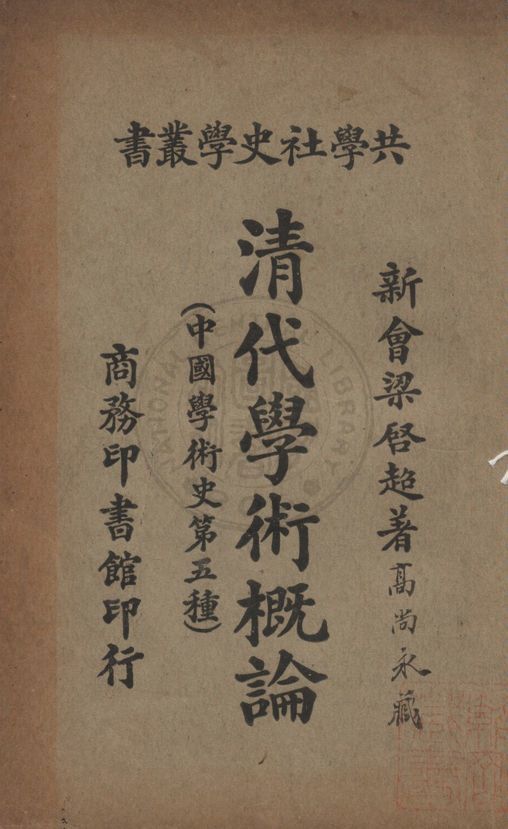 共學社史學叢書
新會梁啓超著
高尚永藏
清代學術概論
(中國學術史第五種)
商務印書館印行
NATIONAL LIBRARY